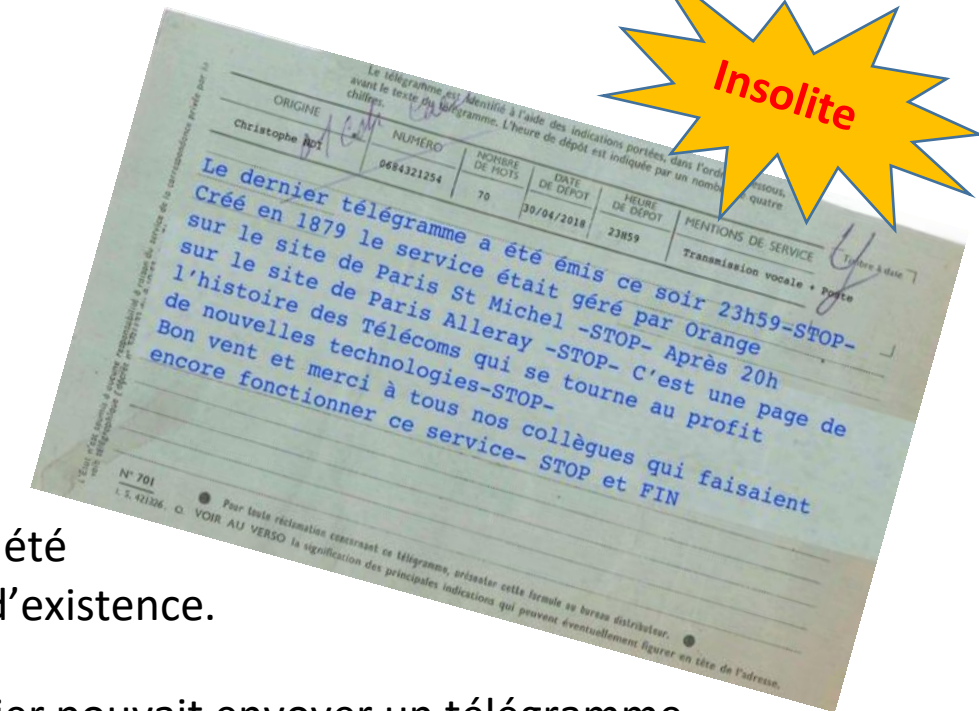 Insolite
Le télégramme est identifié à l'aide des indications portées, dans l'ordre
avant le texte du télégramme. L'heure de dépôt est indiquée par un nombre de quatre
chiffres.
ORIGINE NUMÉRO NOMBRE DE MOTS DATE DE DÉPOT HEURE DE DÉPOT MENTIONS DE SERVICE Timbre à date
Christophe 0684321254 70 30/04/2018 23H59 Transmission vocale + Poste
Le dernier télégramme a été émis ce soir 23h59-STOP-
Créé en 1879 le service était géré par Orange
sur le site de Paris St Michel -STOP- Après 20h
sur le site de Paris Alleray -STOP- C'est une page de
l'histoire des Télécoms qui se tourne au profit
de nouvelles technologies-STOP-
Bon vent et merci à tous nos collègues qui faisaient
encore fonctionner ce service- STOP et FIN
N° 701
Pour toute réclamation concernant ce télégramme, présenter cette formule au bureau distributeur.
VOIR AU VERSO la signification des principales indications qui peuvent éventuellement figurer en tête de l'adresse.
été
d'existence.
pouvait envoyer un télégramme